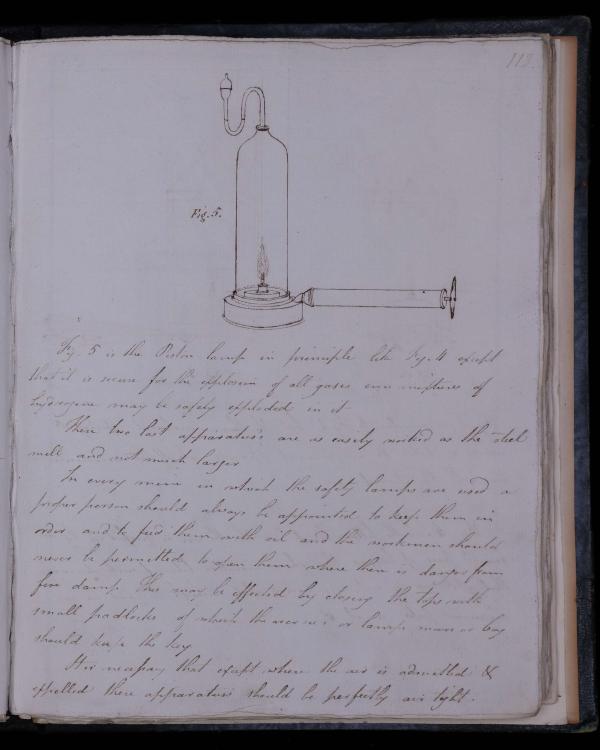 113
Fig. 5.
Fig. 5 is the Piston lamp in principle like Fig. 4 except
that it is secure for the explosion of all gases even mixtures of
hydrogene may be safely exploded in it
These two last apparatus's are as easily worked as the steel
mill and not much larger
In every mine in which the safety lamps are used a
proper person should always be appointed to keep them in
order and to feed them with oil and the workmen should
never be permitted to open them where there is danger from
fire damp. This may be effected by closing the tops with
small padlocks of which the or lamp man or boy
should keep the key
It is necessary that except where the air is admitted &
expelled these apparatus should be perfectly air tight.